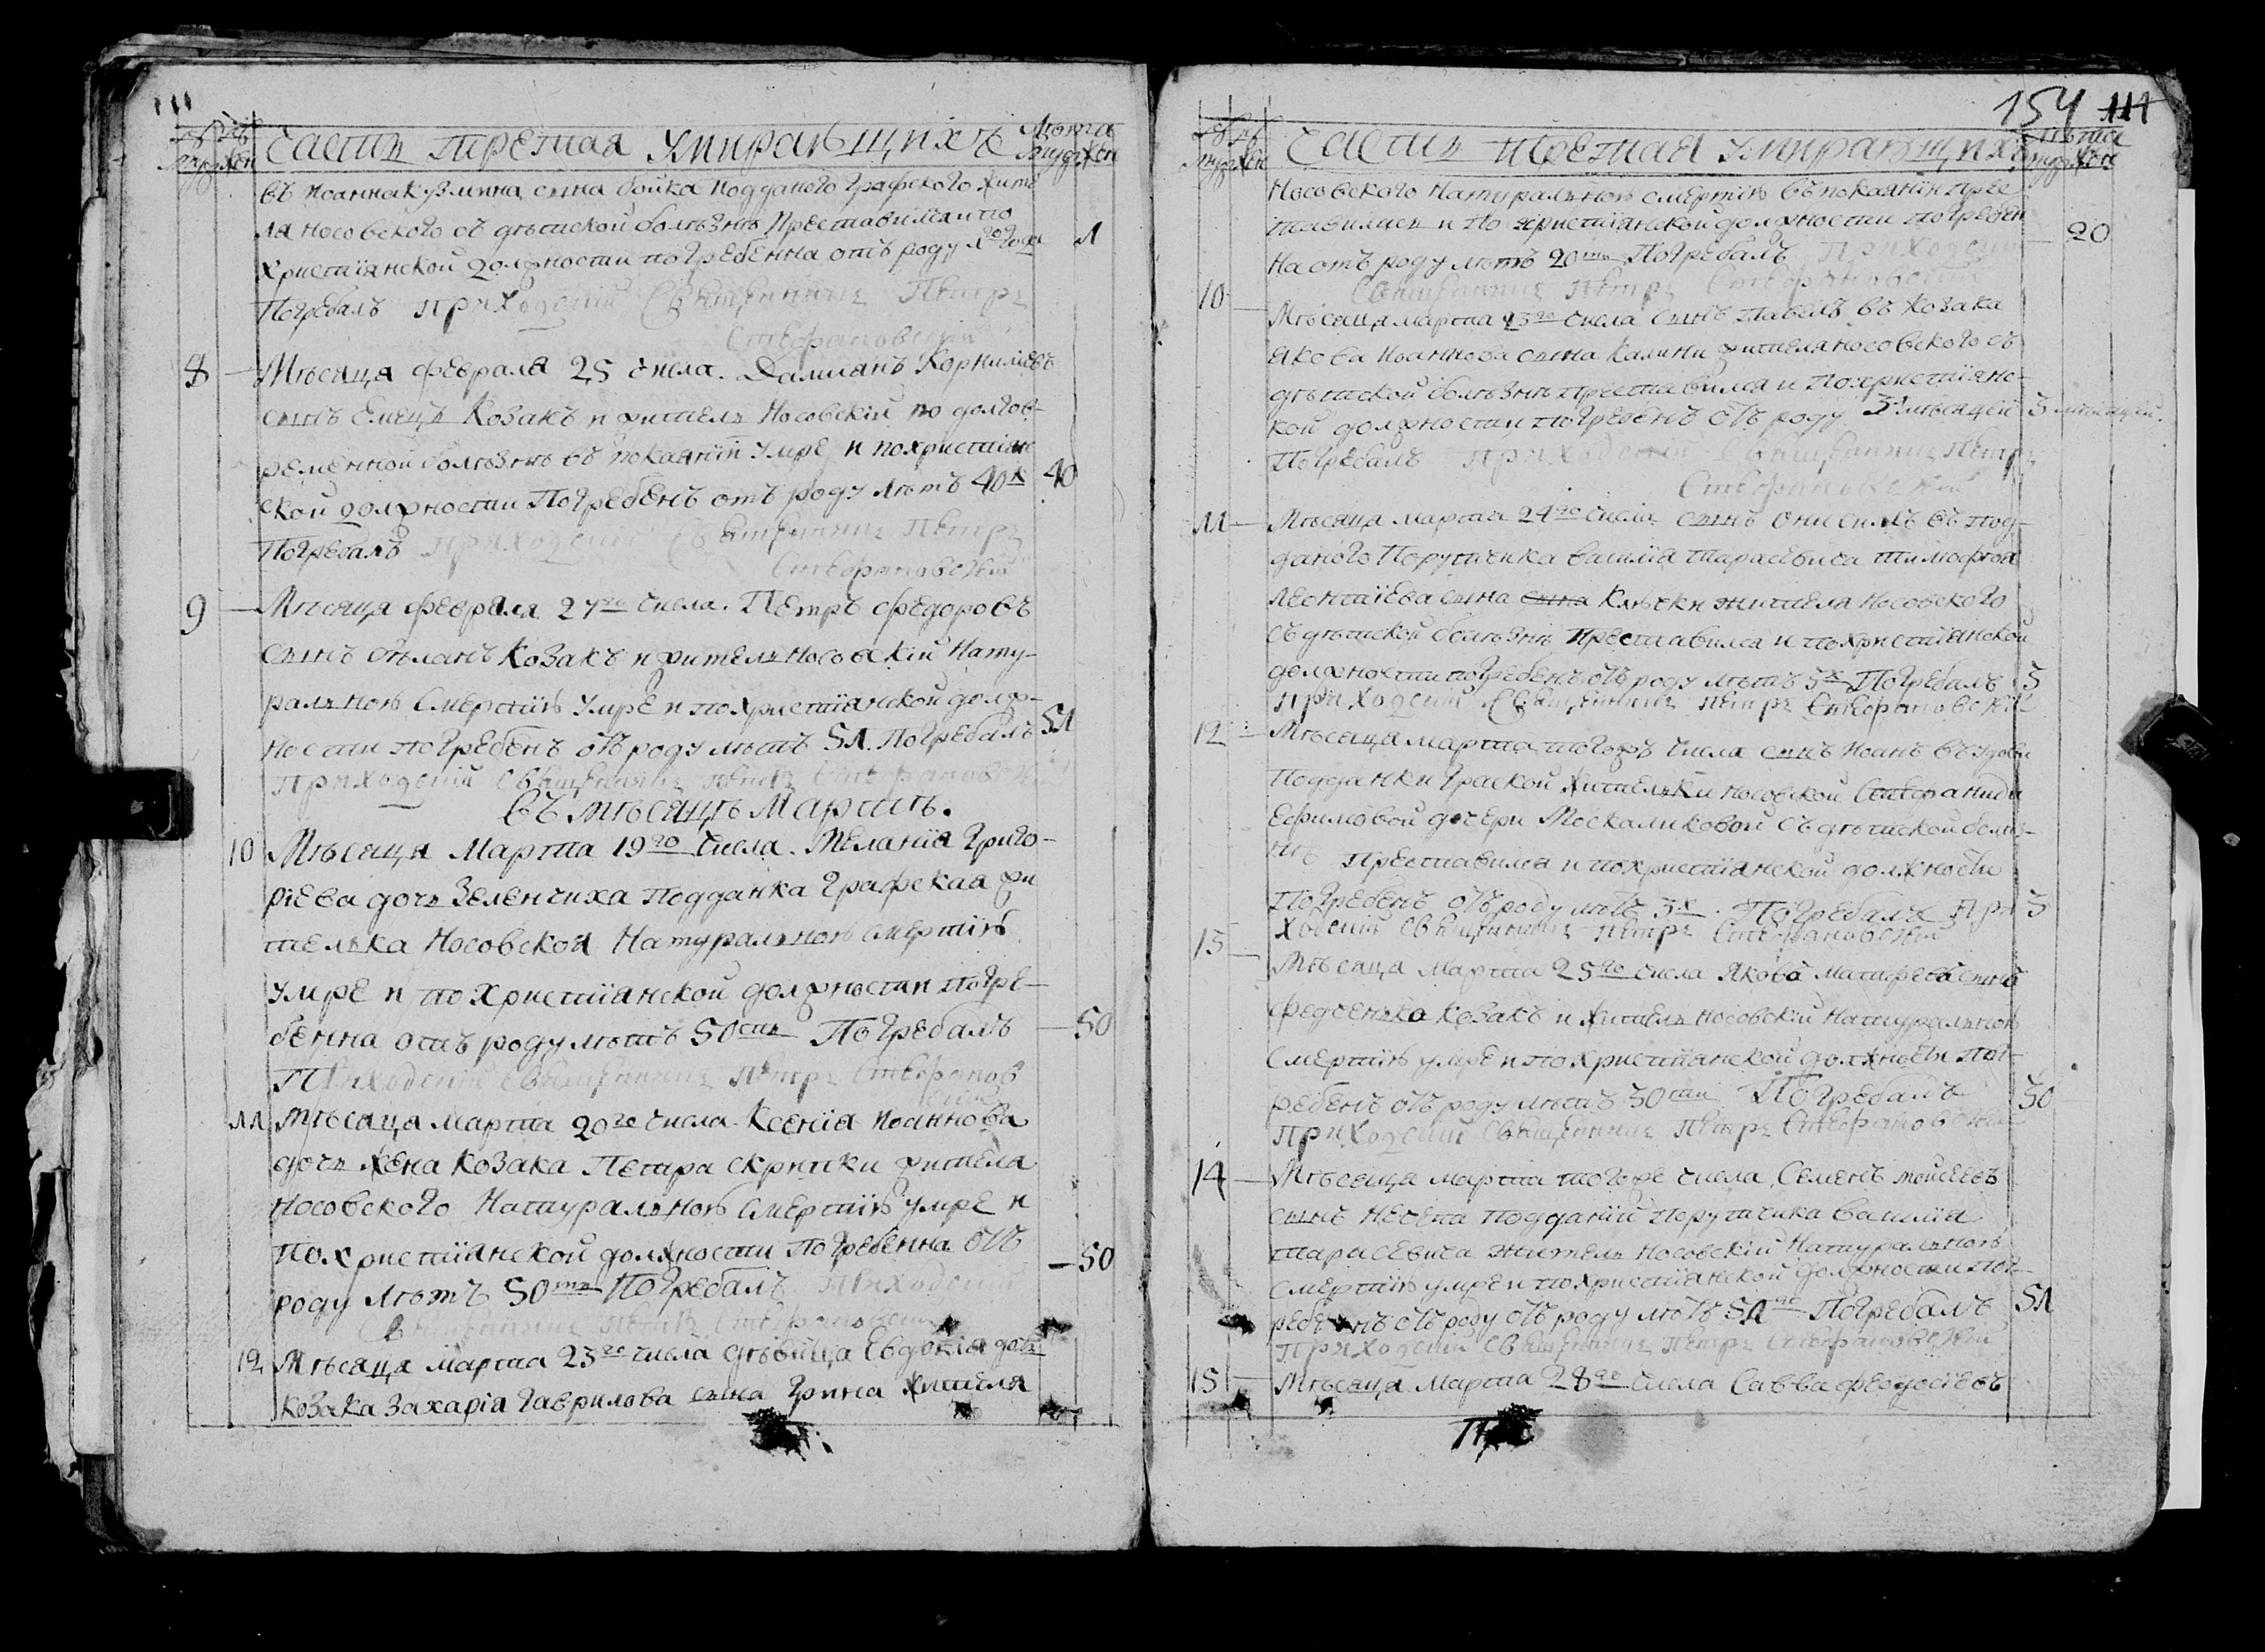 Часть третая умирающихъ
Лѣта
муж жен
въ Иоанна Кузмина сына Бойка подданого графского жите
ля носовского съ дѣтской болѣзнѣ преставилися и по
христіянской должности погребенна отъ роду 1го года
1
Погребалъ приходскій священникъ Петръ
Стефановскій
8 Мѣсяца февраля 25 числа. Даміанъ Корниліевъ
сынъ Емецъ козакъ и житель Носовскій по долгов-
ременной болѣзнѣ въ покаяніи умре и похристіян
ской должности погребенъ отъ роду лѣтъ 40х 40
погребалъ приходскій священникъ Петръ
Стефановскій
9 Мѣсяца февраля 27го числа. Петръ Федоровъ
сынъ козакъ и житель Носовскій нату-
ральною смертію умре и по христіянской долж-
ности погребенъ отъ роду лѣтъ 51. Погребалъ 51
приходскій священникъ Петръ Стефановскій
въ мѣсяцѣ Мартѣ.
10 Мѣсяца Марта 19го числа. Меланія Григо-
ріева дочь Зеленчиха подданка графская жи
телка Носовской натуральною смертію
умре и по христіянской должности погре-
бенна отъ роду лѣтъ 50ть Погребалъ 50
Приходскій священникъ Петръ Стефанов
скій
11 Мѣсяца марта 20го числа. Ксенія Иоаннова
дочь жена козака Петра Скрипки жителя
Носовского натуральною смертію умре и
по христіянской должности погребенна отъ
роду лѣтъ 50ть Погребалъ приходскій 50
священникъ Петръ Стефановскій
12 Мѣсяца марта 23го числа дѣвица Евдокія дочь
козака Захарія Гаврилова сына Грина жителя
154 111
Часть третая умирающихъ
Лѣта
муж жен
Носовского натуральною смертію въ покаяніи пре
ставилися и по христіянской должности погребен
на отъ роду лѣтъ 20ть Погребалъ приходскій 20
священникъ Петръ Стефановскій
10 Мѣсяца марта 23го числа сынъ Павелъ въ козака
Якова Иоаннова сына Калини жителя носовского съ
дѣтской болѣзнѣ преставился и по христіянс-
кой должности погребенъ отъ роду 3 мѣсяцей 3 мѣсяцей.
Погребалъ приходскій священникъ Петръ
Стефановскій
11 Мѣсяца марта 24го числа сынъ Онисимъ въ под-
даного порутчика Василія Тарасевича Тимофея
Леонтіева сына сына жителя Носовского
съ дѣтской болѣзнѣ преставился и похристіянской
должности погребенъ отъ роду лѣтъ 5х Погребалъ 5
приходскій священникъ Петръ Стефановскій
12 Мѣсяца марта тогожъ числа сынъ Иоанъ въ удови
подданки граской жителки носовской Стефаниди
Ефимовой дочери Москаликовой съ дѣтской болѣз-
нѣ преставился и похристіянской должности
погребенъ отъ роду лѣтъ 3х. Погребалъ при 3
ходскій священникъ Петръ Стефановскій
13 Мѣсяца марта 25го числа Яковъ Матфеевъ сынъ
Федченко козакъ и житель носовскій натуральною
смертію умре и по христіянской должности пог-
ребенъ отъ роду лѣтъ 30ти Погребалъ 30
приходскій священникъ Петръ Стефановскій
14 Мѣсяца марта тогоже числа, Семенъ Моисеевъ
сынъ Нечепа подданій порутчика Василія
Тарасевича житель Носовскій натуральною
смертію умре и по христіянской должности пог-
ребенъ отъ роду отъ роду лѣтъ 51го Погребалъ 51
приходскій священникъ Петръ Стефановскій
15 Мѣсяца марта 28го числа Савва Феодосіевъ